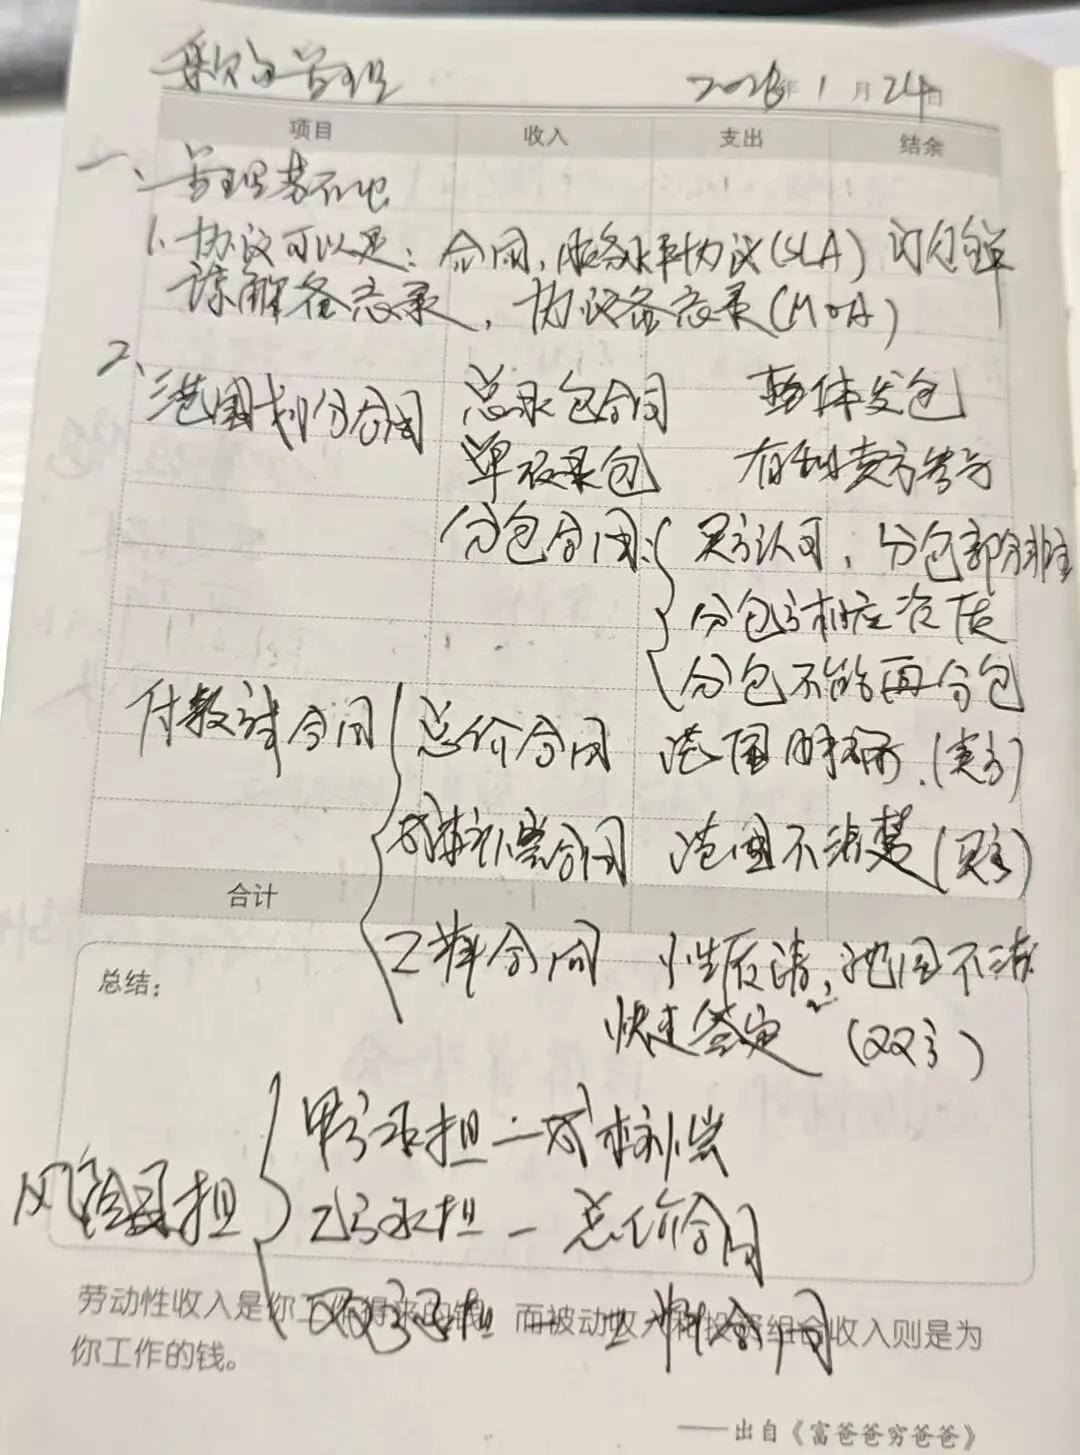 采购管理 2026年1月24日
项目 收入 支出 结余
一、管理基础
1. 协议可以是：合同、服务水平协议(SLA) 订
谅解备忘录，协议备忘录(MOA)
2、
范围划分合同 总承包合同 整体发包
单项承包 有利卖方竞争
分包合同： 买方认可，分包部分非主
分包方相应负责
分包不能再分包
付款方式合同 总价合同 范围明确.(卖方)
成本补偿合同 范围不清楚(买方)
合计
工料合同 性质清，范围不清
总结：
快速签定 (双方)
甲方承担—成本补偿
风险承担 乙方承担—总价合同
双方承担—工料合同
劳动性收入是你工作得来的钱，而被动收入和投资组合收入则是为
你工作的钱。
——出自《富爸爸穷爸爸》